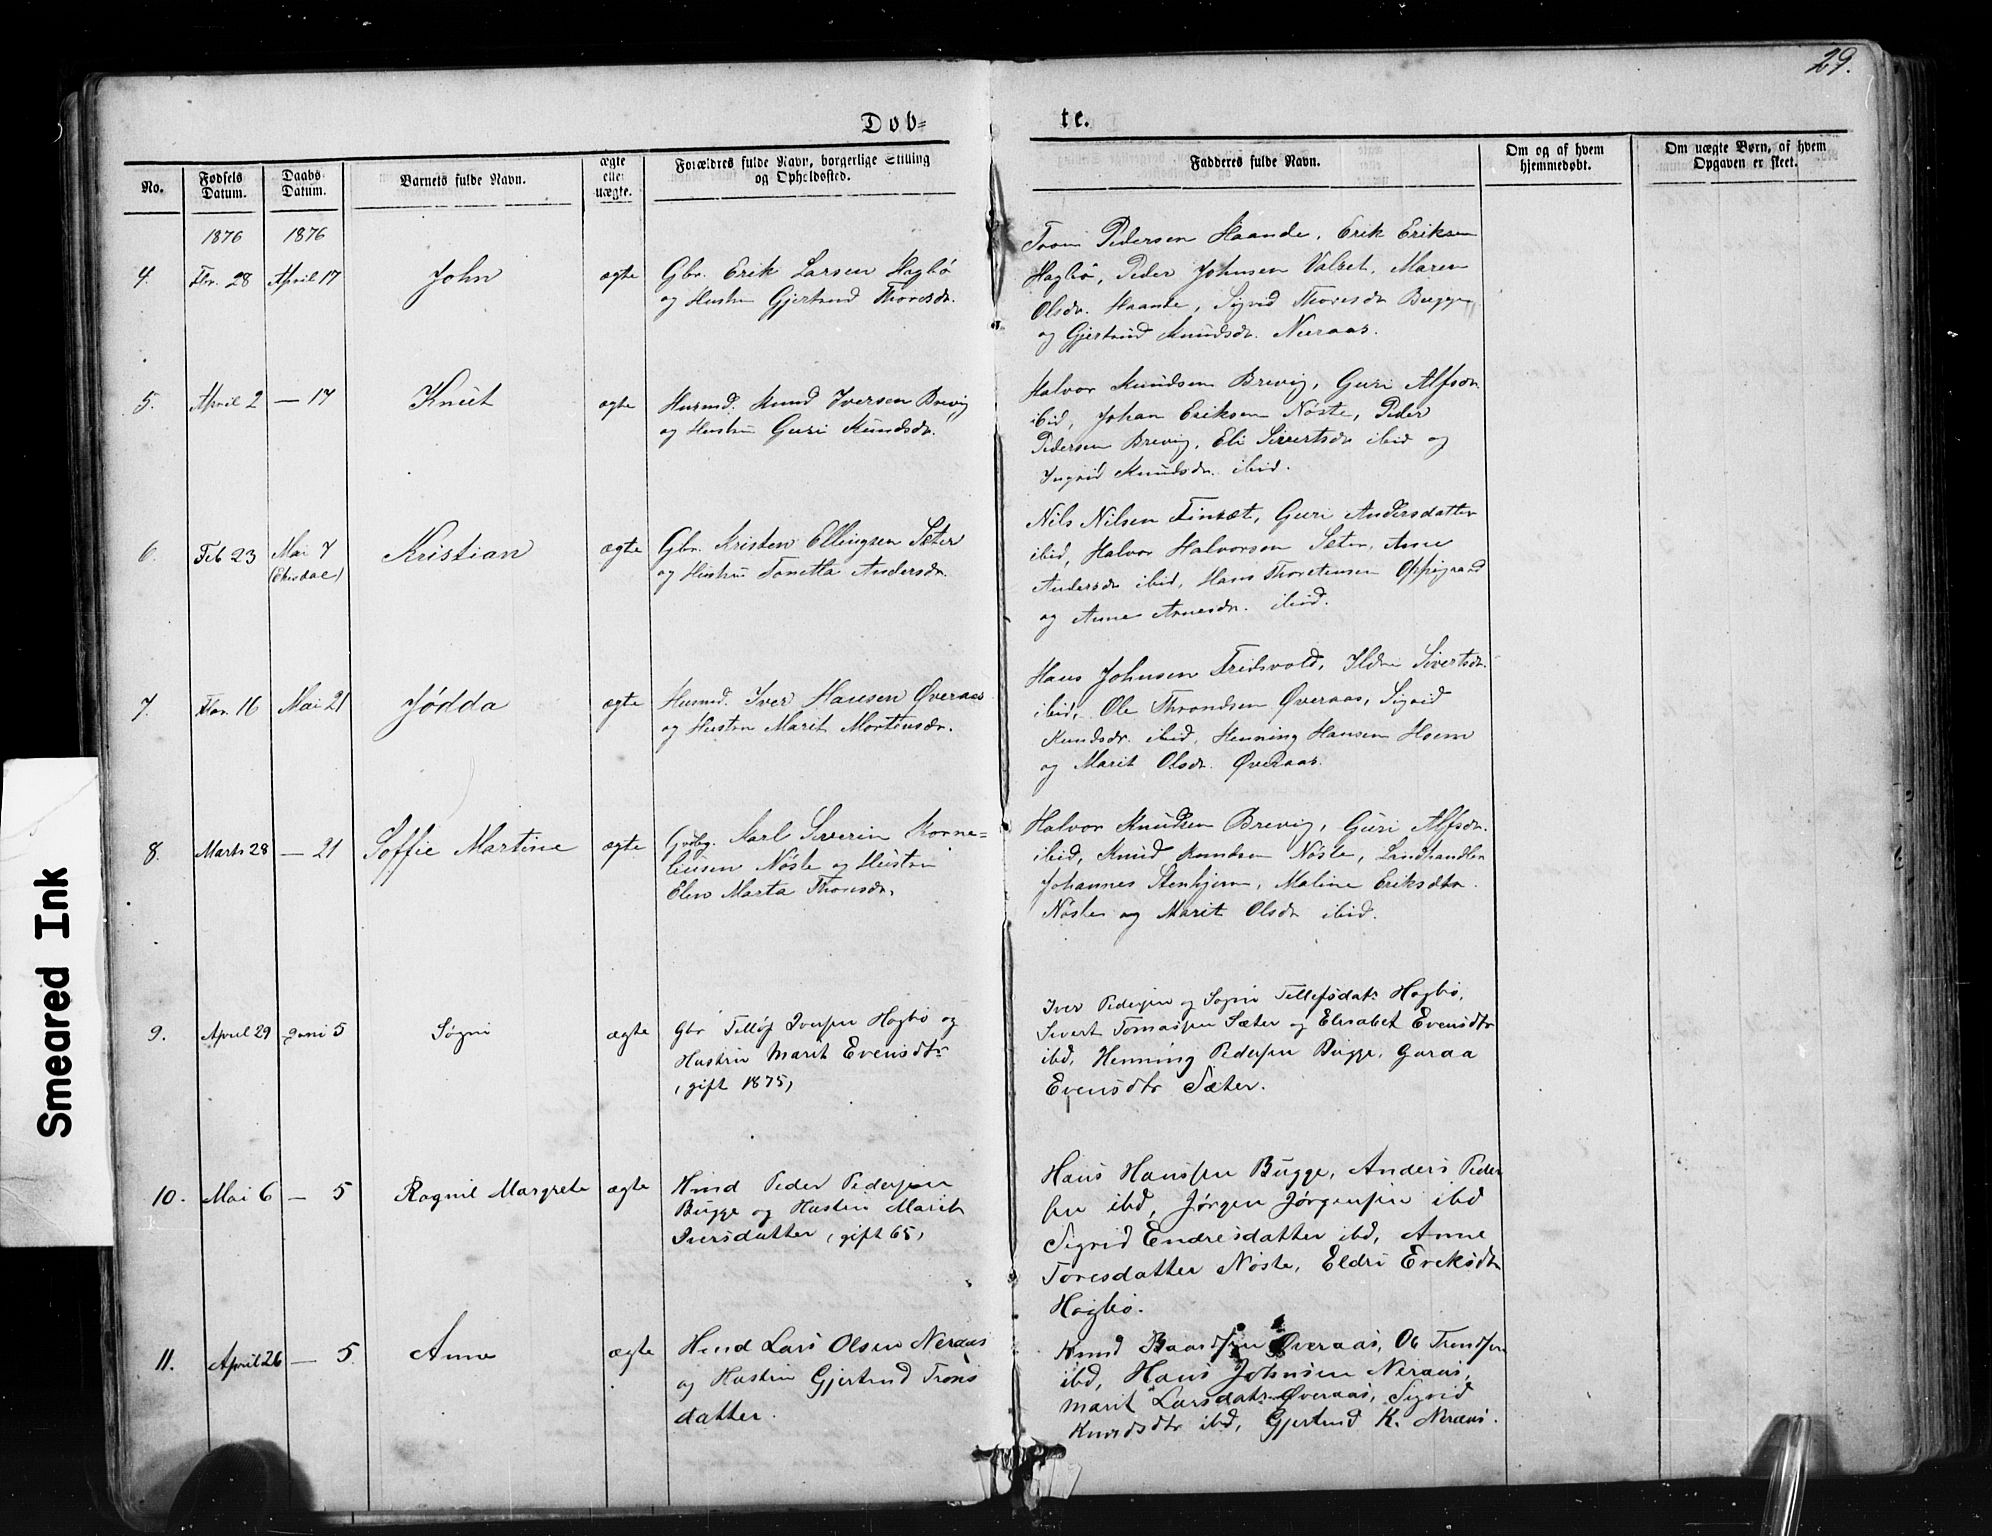 29.
Døb=
te.
No.
Fødsels Datum.
Daabs Datum.
Barnets fulde Navn.
ægte eller uægte.
Forældres fulde Navn, borgerlige Stilling og Opholdssted.
Fadderes fulde Navn.
Om og af hvem hjemmedøbt.
Om uægte Børn, af hvem Opgaven er skeet.
1876 1876
4. Fbr. 28 April 17 John ægte
Gbr. Erik Larsen Hagbø
og Hustru Gjertrud Thoresdr.
Pedersen Haande, Erik Eriksen
Hagbø, Peder Johnsen Valset, Maren
Olsdr. Haande, Sigrid Thoresdr Bugge
og Gjertrud Knudsdr. Neraas.
5. April 2 — 17 Knut ægte
Husmd. Knud Iversen Brevig
og Hustru Guri Knudsdr.
Halvor Knudsen Brevig, Guri Alfsdr.
ibid, Johan Eriksen Nøste, Peder
Pedersen Brevig, Eli Sivertsdr ibid og
Ingrid Knudsdr. ibid.
6. Feb 23 Mai 7 Kristian ægte
Gbr. Kristen Ellingsen Sæter
og Hustru Andersdr.
Nils Nilsen Finsæt, Guri Andersdatter
ibid, Halvor Halvorsen Sæter, Anne
Andersdr ibid, Hans Thorstensen Oppigaard
og Anne Arnesdr. ibid.
7. Fbr. 16 Mai 21 Jødda ægte
Husmd. Iver Hansen Øveraas
og Hustru Marit Mortensdr.
Hans Johnsen Fridsvold, Sivertsdr.
ibid, Ole Throndsen Øveraas, Sigrid
Knudsdr. ibid, Henning Hansen Hoem
og Marit Olsdr. Øveraas.
8. Marts 28 — 21 Soffie Martine ægte
Karl Severin Korne=
liusen Nøste og Hustru
Elen Marta Thoresdr.
Halvor Knudsen Brevig, Guri Alfsdr.
ibid, Knud Knudsen Nøste, Landhandler
Johannes Stenhjem, Maline Eriksdtr.
Nøste og Marit Olsdr ibid.
9. April 29 Juni 5 Søgni ægte
Gbr Tellef Iversen Hagbø og
Hustru Marit Evensdtr
, gift 1875,
Iver Pedersen og Søgni Tellefsdatr Hagbø,
Sivert Tomassen Sæter og Elisabet Evensdtr
ibd, Henning Pedersen Bugge, Guraa
Evensdtr Sæter.
10. Mai 6 — 5 Ragnil Margrete ægte
Hmd Peder Pedersen
Bugge og Hustru Marit
Iversdatter, gift 65,
Hans Hanssen Bugge, Anders Peder
sen ibd, Jørgen Jørgensen ibd
Sigrid Endresdatter ibd, Anne
Toresdatter Nøste, Eldri Eriksdtr
Hagbø.
11. April 26 — 5. Anne ægte
Hmd Lars Olsen Neraas
og Hustru Gjertrud Trons
datter.
Knud Baardsen Øveraas, Ole Trondsen
ibd, Hans Johnsen Neraas,
Marit Larsdatr Øveraas, Sigrid
Knudsdtr ibd, Gjertrud K. Neraas.
Smeared Ink